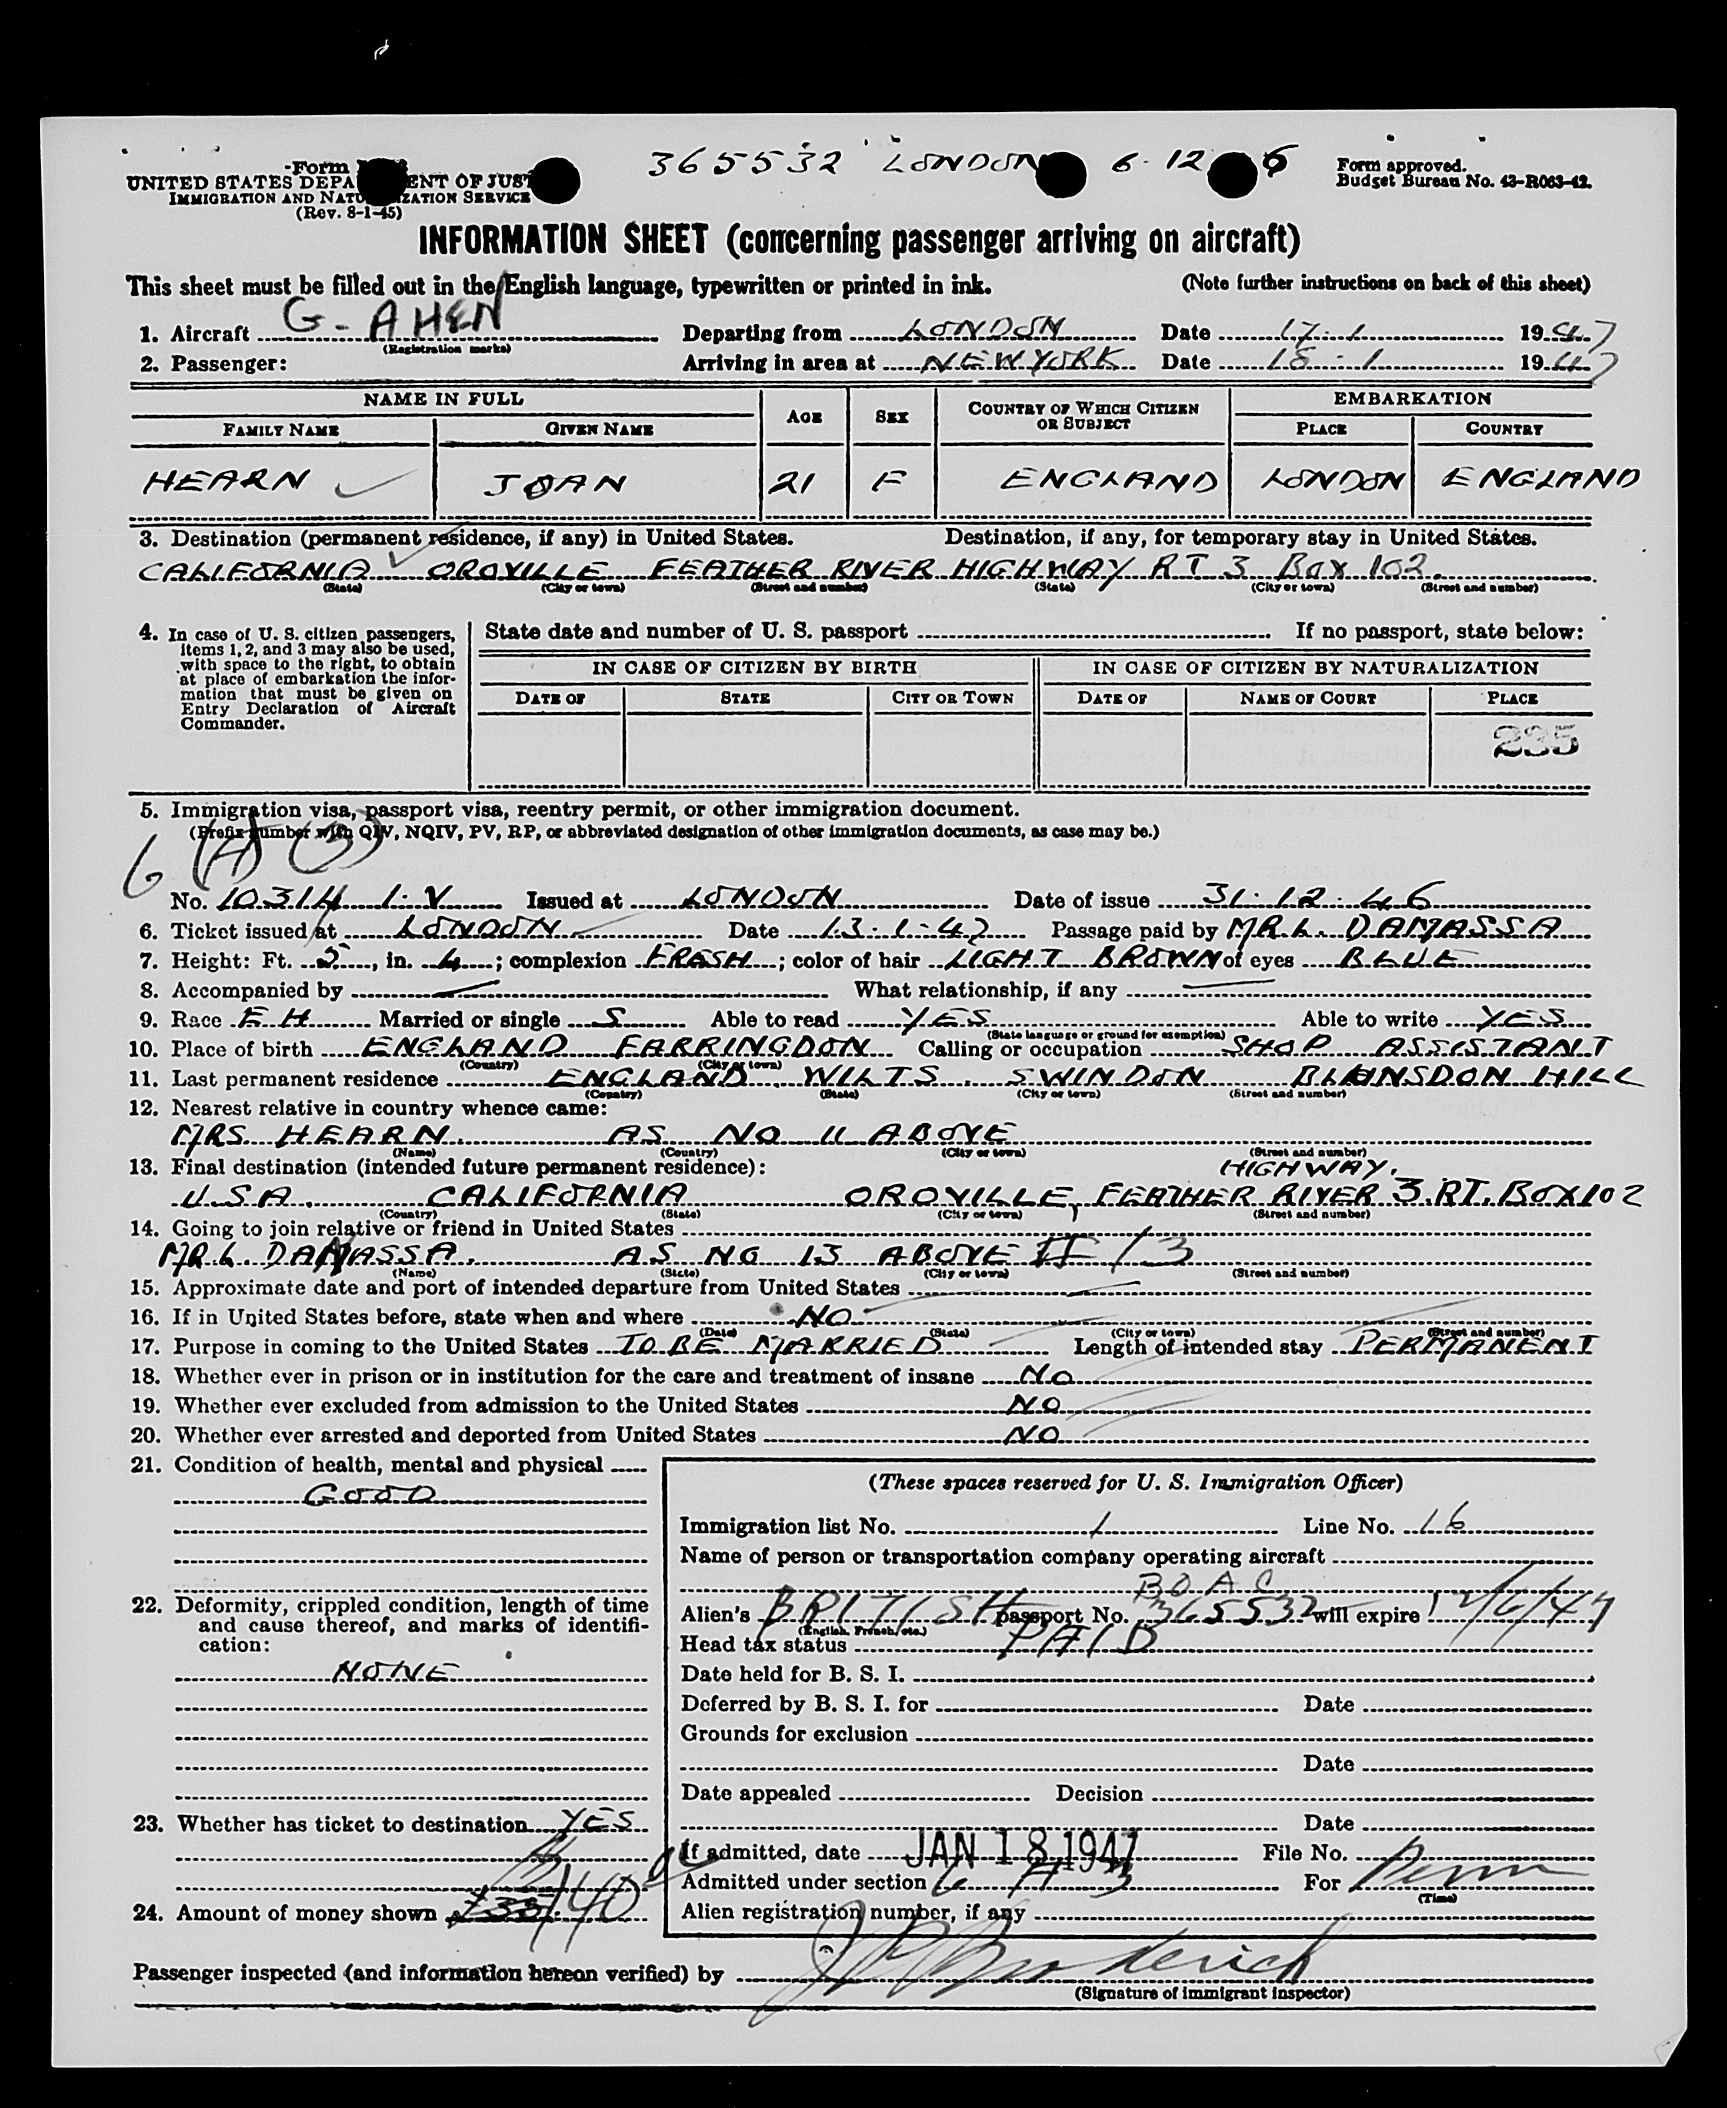 365532 LONDON 6-12 6
Form
UNITED STATES DEPA ENT OF JUST
IMMIGRATION AND NATU IZATION SERVICE
(Rev. 8-1-45)
Form approved.
Budget Bureau No. 43-R063-42.
INFORMATION SHEET (concerning passenger arriving on aircraft)
This sheet must be filled out in the English language, typewritten or printed in ink. (Note further instructions on back of this sheet)
1. Aircraft G-AHEN Departing from LONDON Date 17.1 1947
(Registration marks)
2. Passenger: Arriving in area at NEW YORK Date 18-1 1947
NAME IN FULL AGE SEX COUNTRY OF WHICH CITIZEN OR SUBJECT EMBARKATION
FAMILY NAME GIVEN NAME PLACE COUNTRY
HEARN JOAN 21 F ENGLAND LONDON ENGLAND
3. Destination (permanent residence, if any) in United States. Destination, if any, for temporary stay in United States.
CALIFORNIA OROVILLE FEATHER RIVER HIGHWAY RT 3 Box 102.
(State) (City or town) (Street and number) (State) (City or town) (Street and number)
4. In case of U. S. citizen passengers,
items 1, 2, and 3 may also be used,
with space to the right, to obtain
at place of embarkation the infor-
mation that must be given on
Entry Declaration of Aircraft
Commander.
State date and number of U. S. passport If no passport, state below:
IN CASE OF CITIZEN BY BIRTH IN CASE OF CITIZEN BY NATURALIZATION
DATE OF STATE CITY OR TOWN DATE OF NAME OF COURT PLACE
235
5. Immigration visa, passport visa, reentry permit, or other immigration document.
(Prefix number with QIV, NQIV, PV, RP, or abbreviated designation of other immigration documents, as case may be.)
6 (A) (3)
No. 10314 I.V Issued at LONDON Date of issue 31.12.46
6. Ticket issued at LONDON Date 13.1.47 Passage paid by MR.L. DAMASSA
7. Height: Ft. 5, in. 4; complexion FRESH; color of hair LIGHT BROWN of eyes BLUE
8. Accompanied by — What relationship, if any —
9. Race EH Married or single S Able to read YES Able to write YES
(State language or ground for exemption)
10. Place of birth ENGLAND FARRINGDON Calling or occupation SHOP ASSISTANT
(Country) (City or town)
11. Last permanent residence ENGLAND WILTS. SWINDON BLUNSDON HILL
(Country) (State) (City or town) (Street and number)
12. Nearest relative in country whence came:
MRS HEARN. AS NO 11 ABOVE
(Name) (Country) (City or town) (Street and number)
13. Final destination (intended future permanent residence): HIGHWAY.
U.S.A. CALIFORNIA OROVILLE, FEATHER RIVER 3.RT. Box 102
(Country) (State) (City or town) (Street and number)
14. Going to join relative or friend in United States
MR.L. DAMASSA. AS NO 13 ABOVE # 13
(Name) (State) (City or town) (Street and number)
15. Approximate date and port of intended departure from United States —
16. If in United States before, state when and where NO
(Date) (State) (City or town) (Street and number)
17. Purpose in coming to the United States TO BE MARRIED Length of intended stay PERMANENT
18. Whether ever in prison or in institution for the care and treatment of insane No
19. Whether ever excluded from admission to the United States NO
20. Whether ever arrested and deported from United States NO
21. Condition of health, mental and physical
GOOD
22. Deformity, crippled condition, length of time
and cause thereof, and marks of identifi-
cation:
NONE
23. Whether has ticket to destination YES
24. Amount of money shown $140
(These spaces reserved for U. S. Immigration Officer)
Immigration list No. 1 Line No. 16
Name of person or transportation company operating aircraft
B O A C
Alien's BRITISH passport No. 365532 will expire 12/6/47
(English, French, etc.)
Head tax status PAID
Date held for B. S. I.
Deferred by B. S. I. for Date
Grounds for exclusion
Date
Date appealed Decision
Date
If admitted, date JAN 18 1947 File No.
Admitted under section 6 A 3 For Perm
(Time)
Alien registration number, if any
Passenger inspected (and information hereon verified) by
(Signature of immigrant inspector)